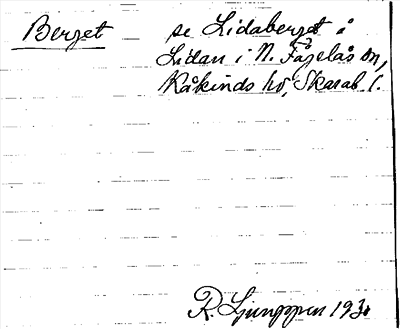 Berget se Lidaberget å
Lidan i N. Fågelås sn,
Kåkinds hd, Skarab. l.
R. Ljunggren 1930